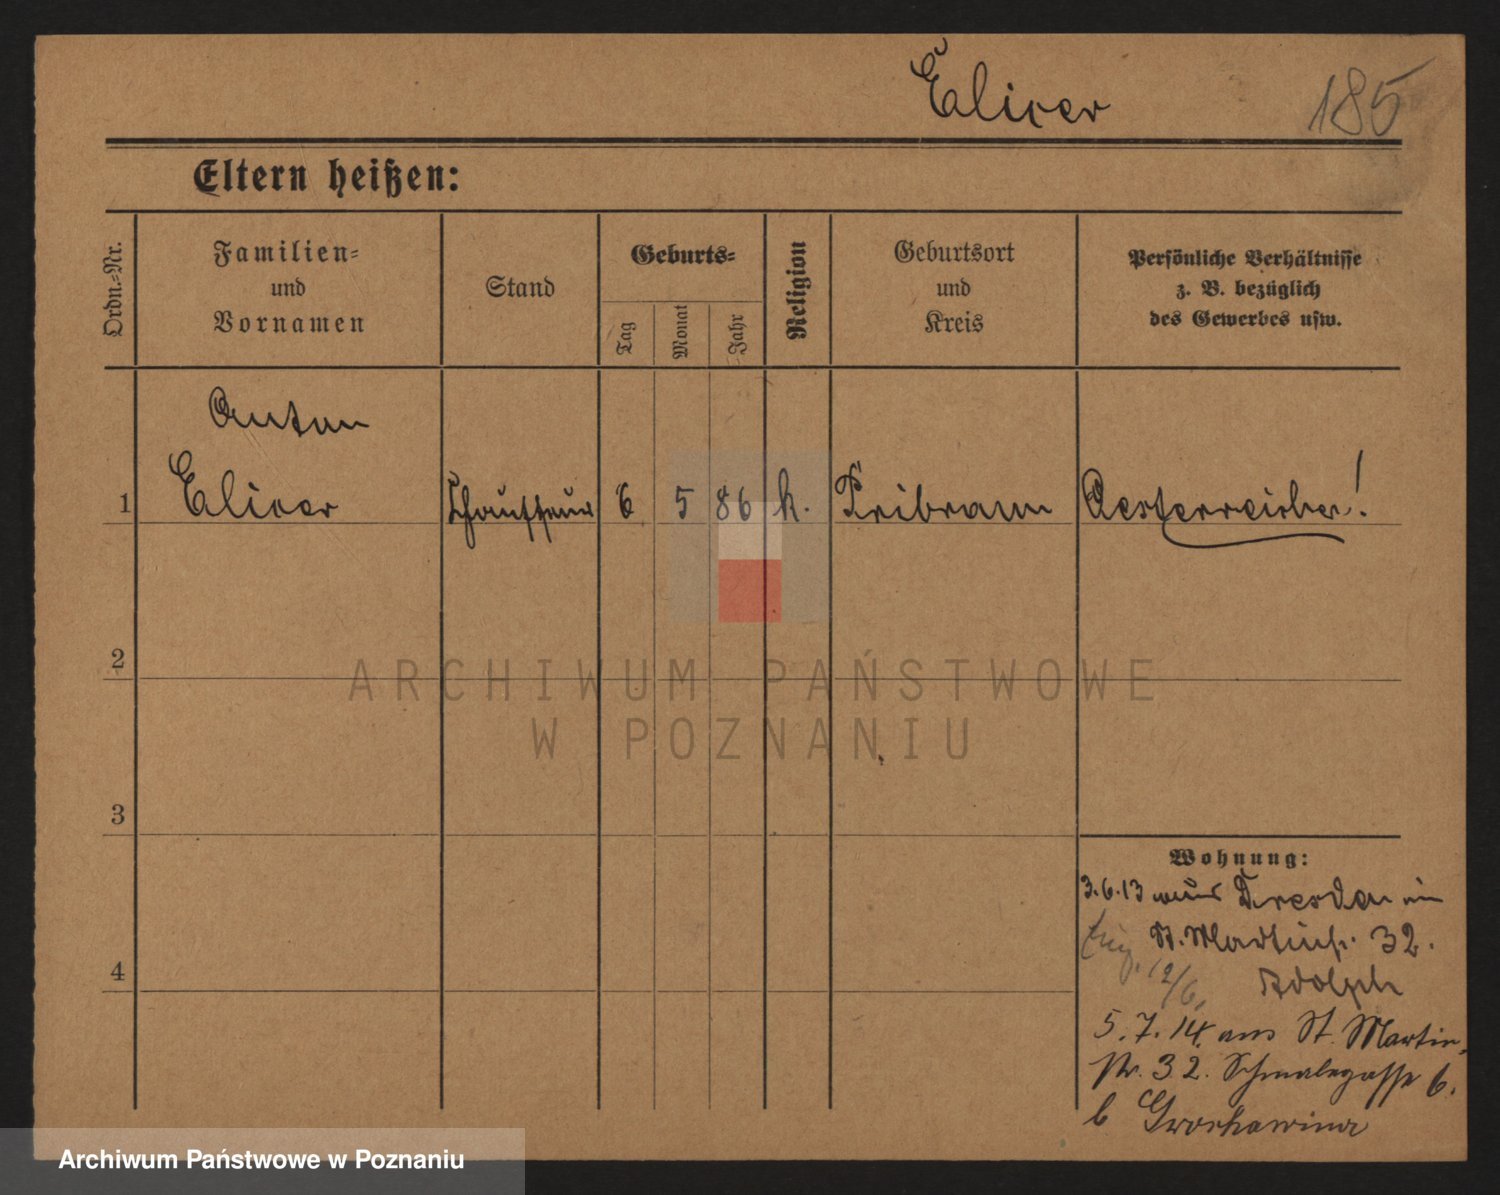 Elicer
185
Eltern heißen:
Ordn.-Nr.
Familien-
und
Vornamen
Stand
Geburts-
Tag
Monat
Jahr
Religion
Geburtsort
und
Kreis
Persönliche Verhältnisse
z. B. bezüglich
des Gewerbes usw.
Anton
1 Elicer Chauffeur 6 5 86 k. Pribram Oesterreicher!
2
ARCHIWUM PAŃSTWOWE
W POZNANIU
3
Wohnung:
3.6.13 aus Dresden in
St. Martinstr. 32.
4
12/6.
Adolph
5.7.14. aus St. Martin-
str. 32. Schmalegasse 6.
b Grochowina
Archiwum Państwowe w Poznaniu